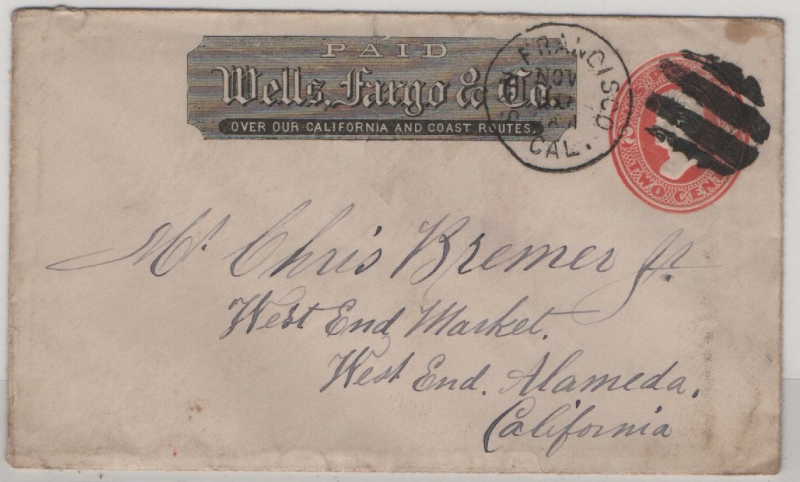 PAID
Wells, Fargo & Co.
OVER OUR CALIFORNIA AND COAST ROUTES.
SAN FRANCISCO
NOV
CAL.
TWO CENTS
Mr. Chris Bremer Jr.
West End Market.
West End. Alameda,
California